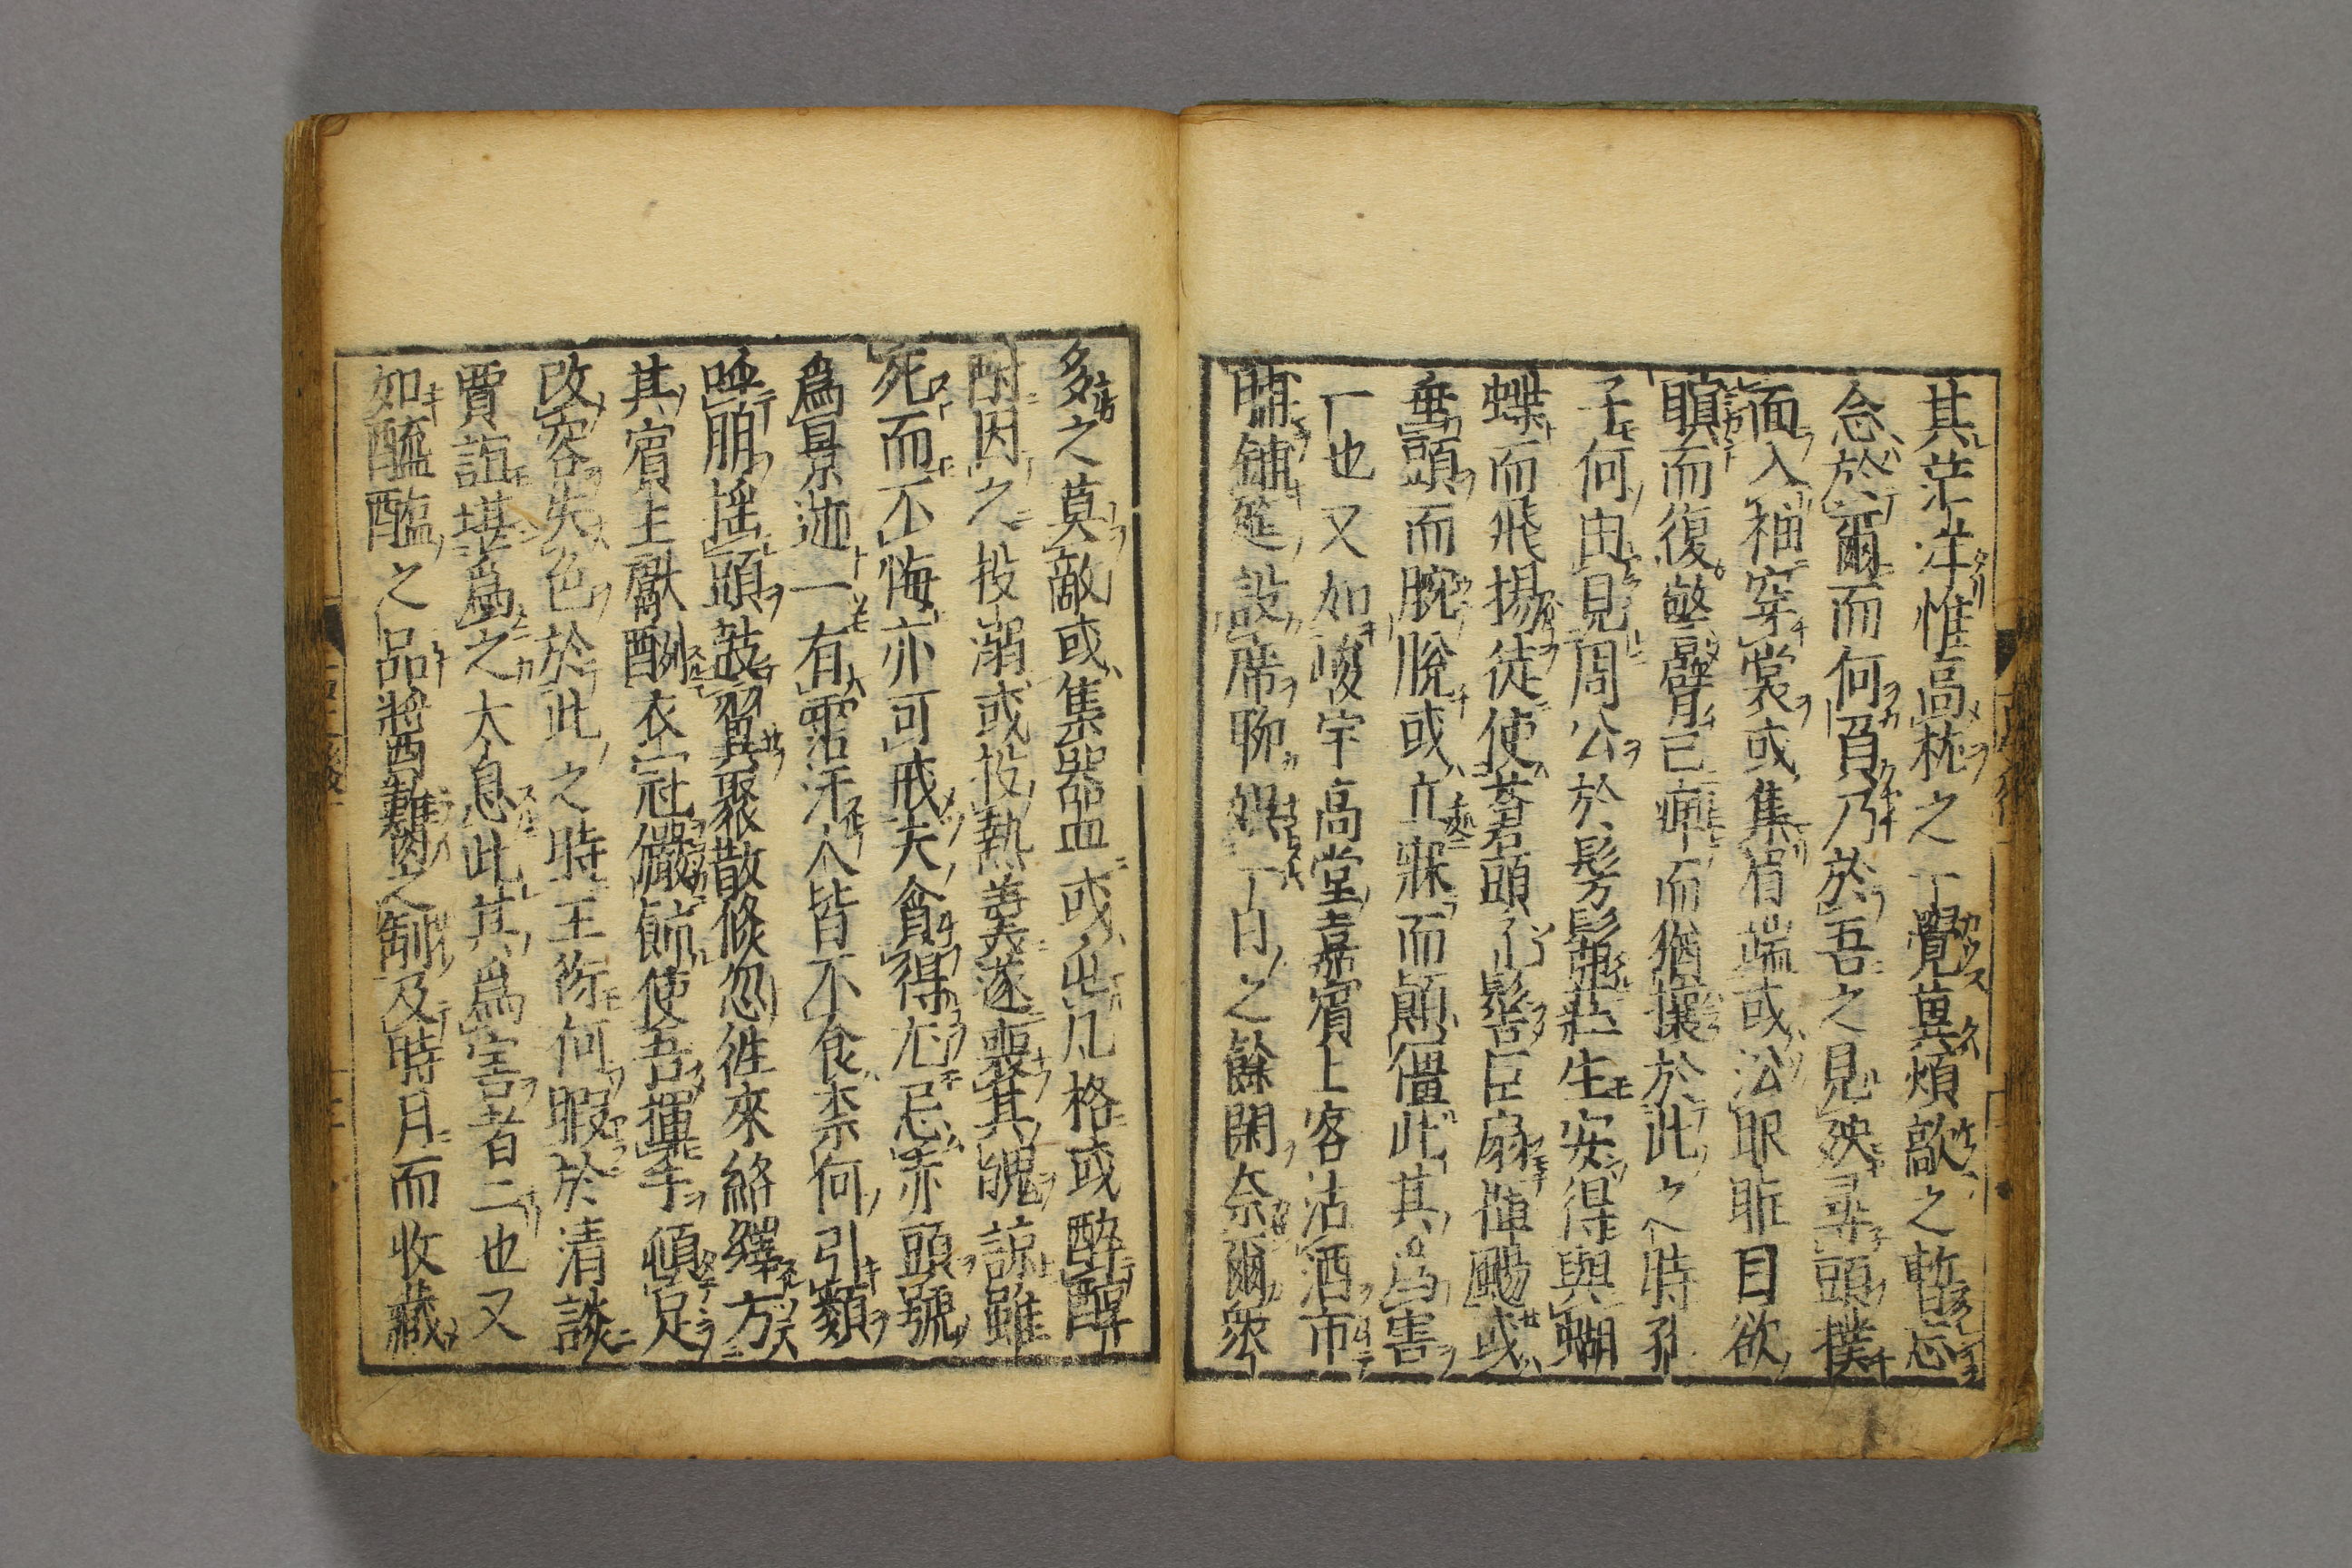 其茫洋惟高枕之一覺冀煩歊之暫忘
念於爾而何負乃於吾之見殃尋頭撲
面入袖穿裳或集眉端或沿眼眶目欲
瞑而復警臂已痺而猶攘於此之時孔
子何由見周公於髣髴莊生安得與蝴
蝶而飛揚徒使蒼頭丫髻巨扇揮颺或
垂頭而腕脫或立寐而顛僵此其爲害
一也又如峻宇高堂嘉賓上客沽酒市
脯鋪筵設席聊娛一日之餘閑奈爾衆
多之莫敵或集器皿或屯几格或醉醇
酎因之投溺或投熱羹遂喪其魄諒雖
死而不悔亦可戒夫貪得尤忌赤頭號
爲景迹一有霑汙人皆不食柰何引類
呼朋搖頭鼓翼聚散倐忽徃來絡繹方
其賓主獻酬衣冠儼飾使吾揮手頓足
改容失色於此之時王衍何暇於清談
賈誼堪爲之太息此其爲害者二也又
如醯醢之品醬臡之制及時月而收藏